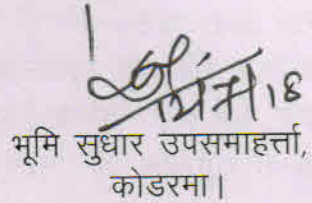 भूमि सुधार उपसमाहर्त्ता,
कोडरमा।